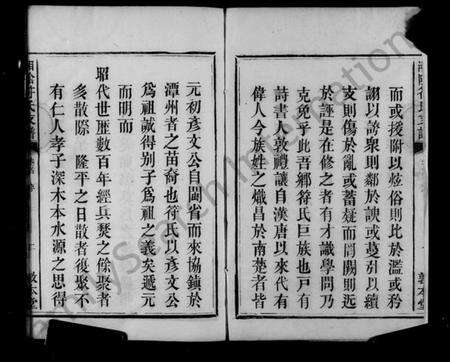 而或援附以炫俗則比於濫或矜
詡以謗衆則鄰於諛或蔓引以續
支則傷於亂或蓄疑而間闕則近
於誣是在修之者有才識學問乃
克免乎此吾鄉符氏巨族也戸有
詩書人敦禮讓自漢唐以來代有
偉人今族姓之熾昌於南楚者皆
敦本堂
元初彥文公自閩省而來協鎮於
潭州者之苗裔也符氏以彥文公
為祖誠得别子為祖之義矣遞元
而明而
昭代世歴數百年經兵燹之餘聚者
多散際 隆平之日散者復聚不
有仁人孝子深木本水源之思得
湘陰符氏支譜
敦本堂
FamilySearch International